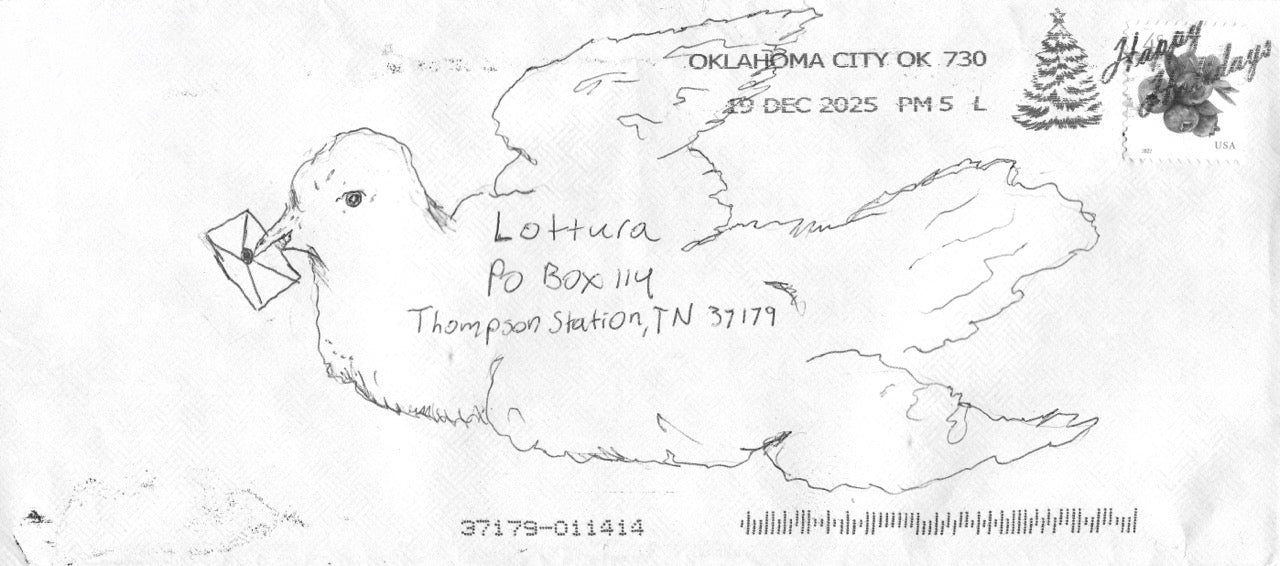 OKLAHOMA CITY OK 730
19 DEC 2025 PM 5 L
Happy
USA
Lottura
Po Box 114
Thompson Station, TN 37179
37179-011414